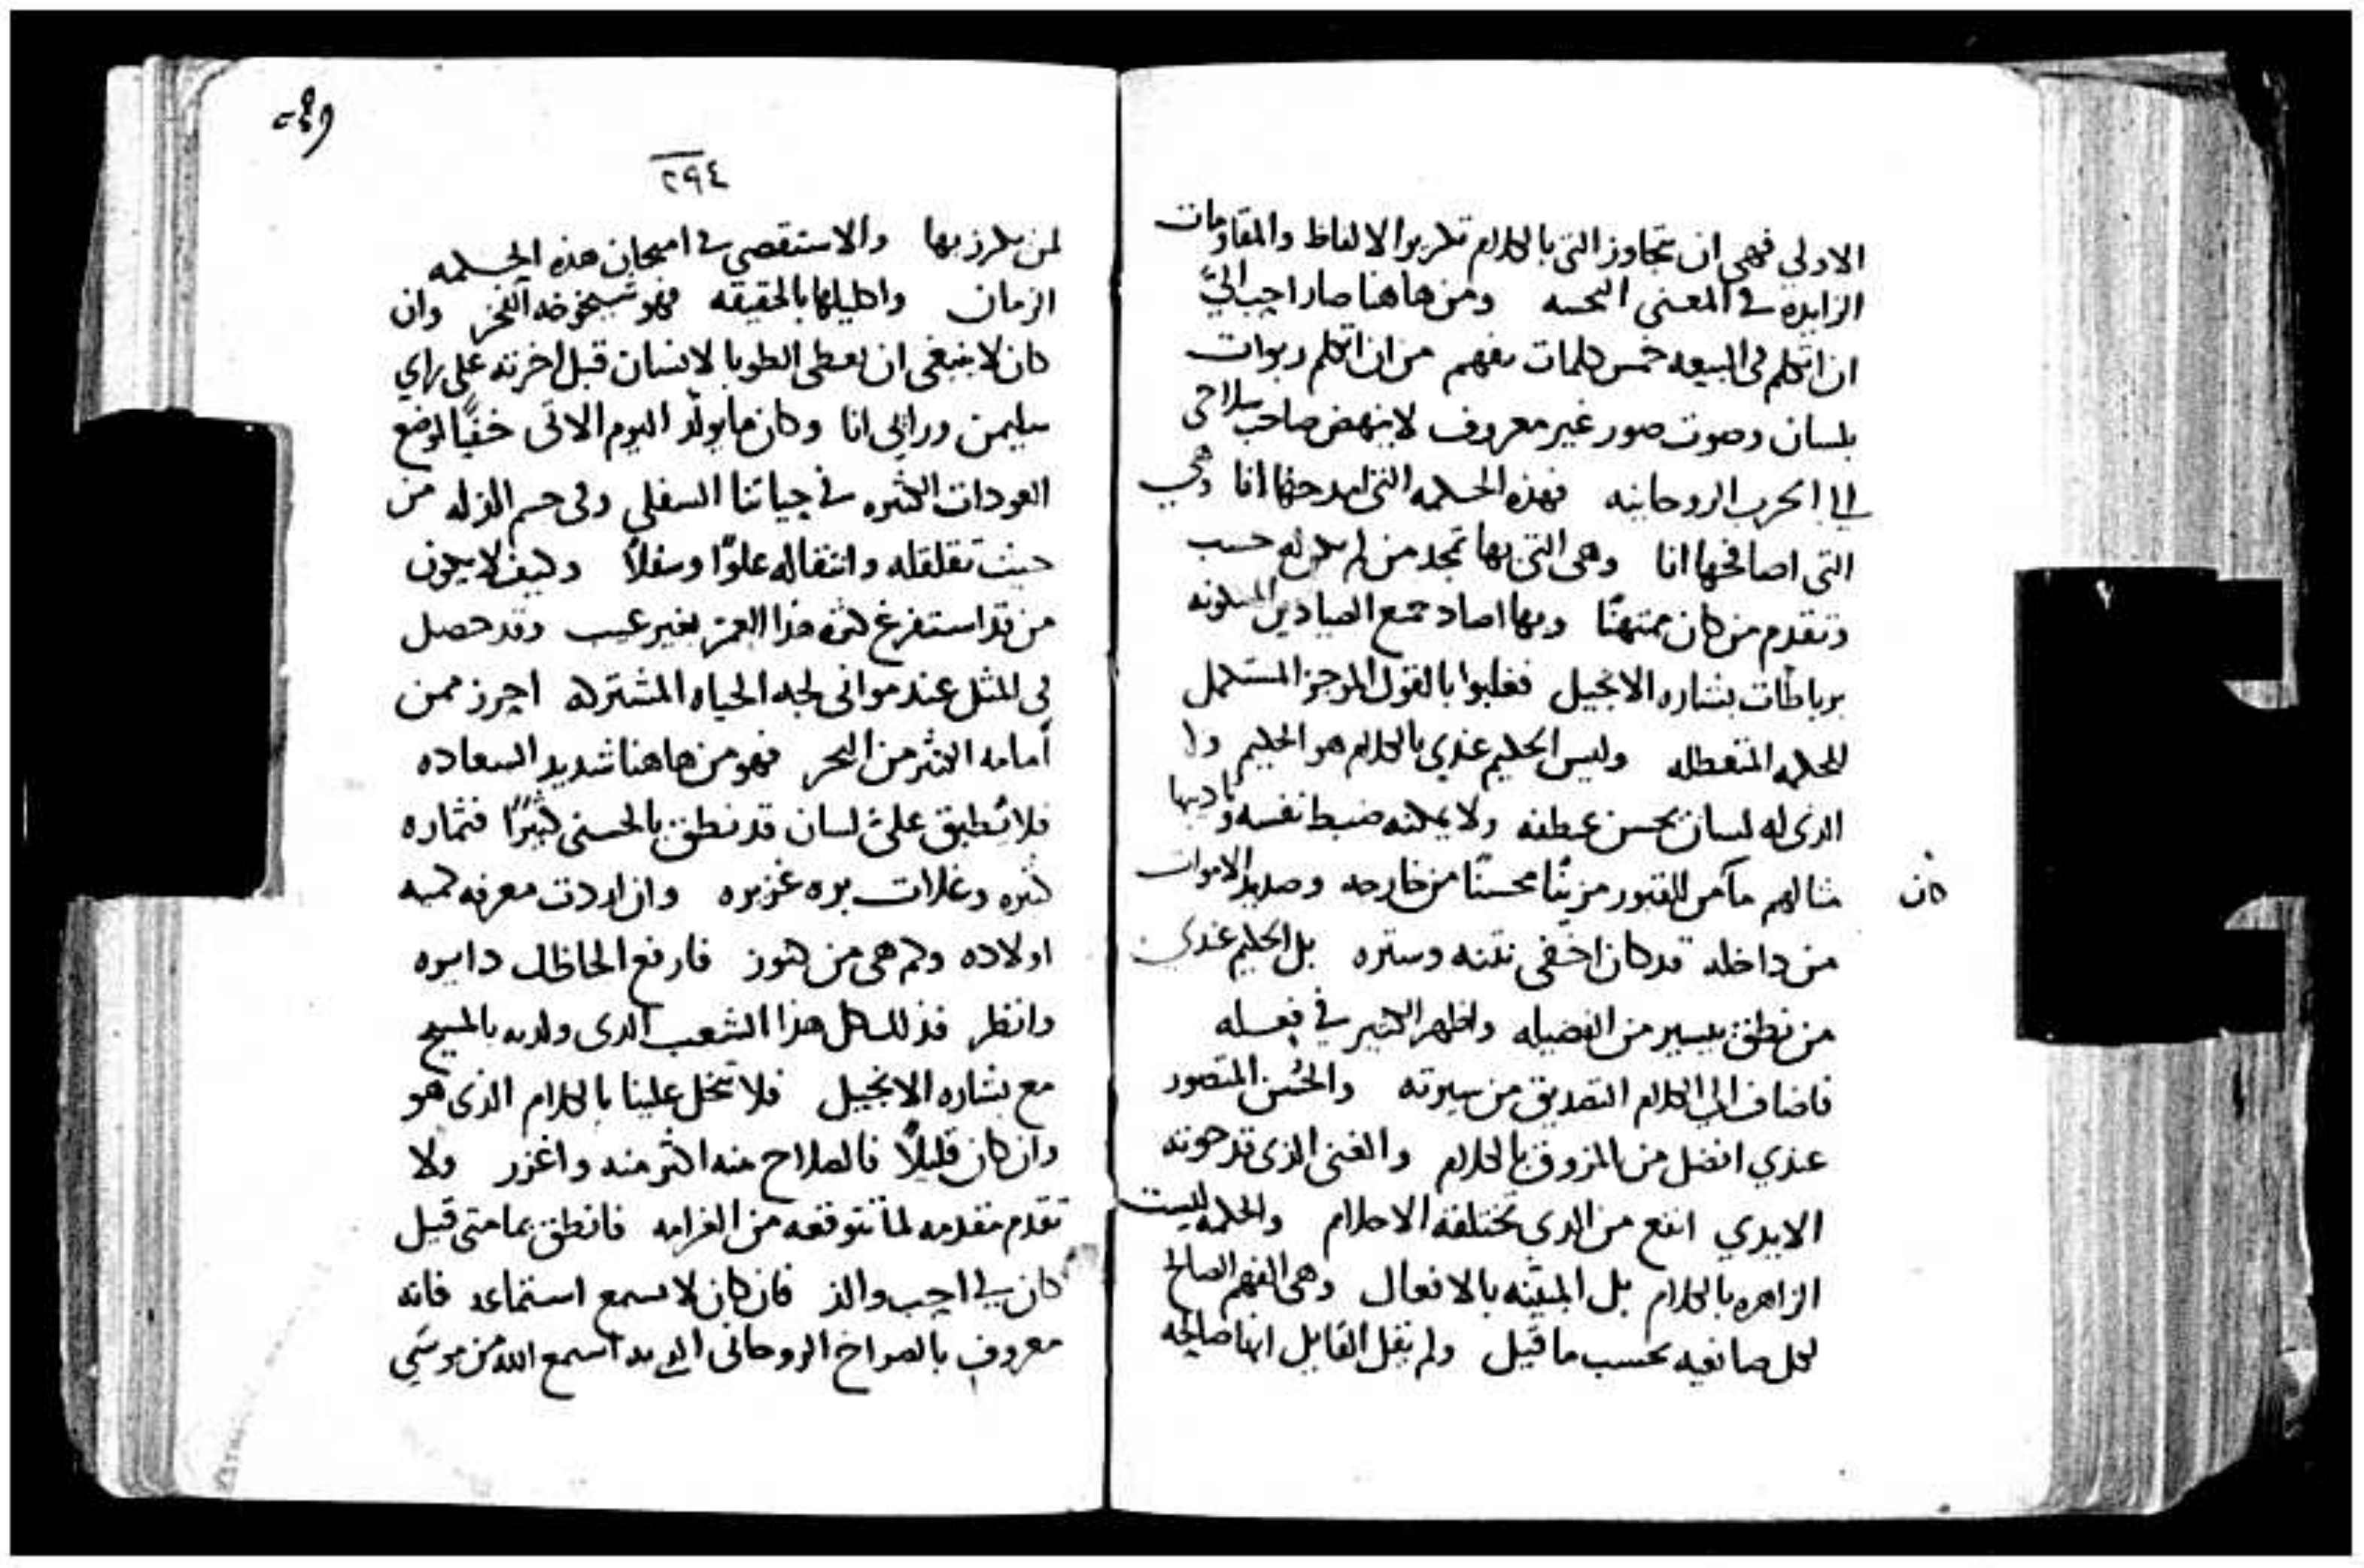 الاولي فهي ان تتجاوز التي بالكلام تكرير الالفاظ والمقاومات
الزايده في المعني النجسه ومن هاهنا صار احب اليَّ
ان اتكلم في البيعه خمس كلمات بفهم من ان اتكلم ربوات
بلسان وصوت صور غير معروف لا ينهض صاحب سلاحي
الي الحرب الروحانيه فهذه الحكمه التي امدحها انا وهي
التي اصافحها انا وهي التي بها تمجد من لم يكن له حسب
وتقدم من كان ممتهنًا وبها اصاد جمع الصيادين المسكونه
برباطات بشاره الانجيل فغلبوا بالقول الموجز المستكمل
للحكمه المتعطله وليس الحكيم عندي بالكلام هو الحكيم ولا
الذي له لسان يحسن عطفه ولا يمكنه ضبط نفسه وتاديبها
كان
مثالهم من القبور مزينًا محسنًا من خارجه وصديد الاموات
من داخله قد كان اخفي نتنه وستره بل الحكيم عندي
من نطق بيسير من الفضيله واظهر الكثير في فعله
فاضاف الي الكلام التصديق من سيرته والحُسن المتصور
عندي افضل من المزوق بالكلام والغني الذي قد حوته
الايدي انفع من الذي تختلقه الاحلام والحكمه ليست
الزاهره بالكلام بل المبيّنه بالافعال وهي الفهم الصالح
لكل صانعيه بحسب ما قيل ولم يقل القايل انها صالحه
٢٩٤
لمن يكرز بها والاستقصي في امتحان هذه الحكمه
الزمان واكليلها بالحقيقه فهو شيخوخه الفخر وان
كان لا ينبغي ان يعطي الطوبا لانسان قبل اخرته علي راي
سليمن ورايي انا وكان ما يولّد اليوم الاتي خفيًا لموضع
العودات الكثيره في حياتنا السفلي وفي جسم المذله من
حيث تقلقله وانتقاله علوًا وسفلاً وكيف لا يكون
من قد استفرغ كثره هذا العمر بغير عيب وقد حصل
في المثل عند مواني لجه الحياه المشتركه احرز ممن
أمامه الكثير من البحر فهو من هاهنا شديد السعاده
فلا تُطبق علي لسان قد نطق بالحسني كثيرًا فثماره
كثيره وغلات بره غزيره وان اردت معرفه كميه
اولاده وكم هي من كنوز فارفع الحاظك دايره
وانظر فذلك كل هذا الشعب الذي ولدته بالمسيح
مع بشاره الانجيل فلا تبخل علينا بالكلام الذي هو
وان كان قليلاً فالصلاح منه اكثر منه واغزر ولا
تقدم مقدمه لما نتوقعه من الغرامه فانطق بما متي قيل
كان لي احب والذ فان كان لا يسمع استماعه فانه
معروف بالصراخ الروحاني الذي به اسمع الله من موسَي